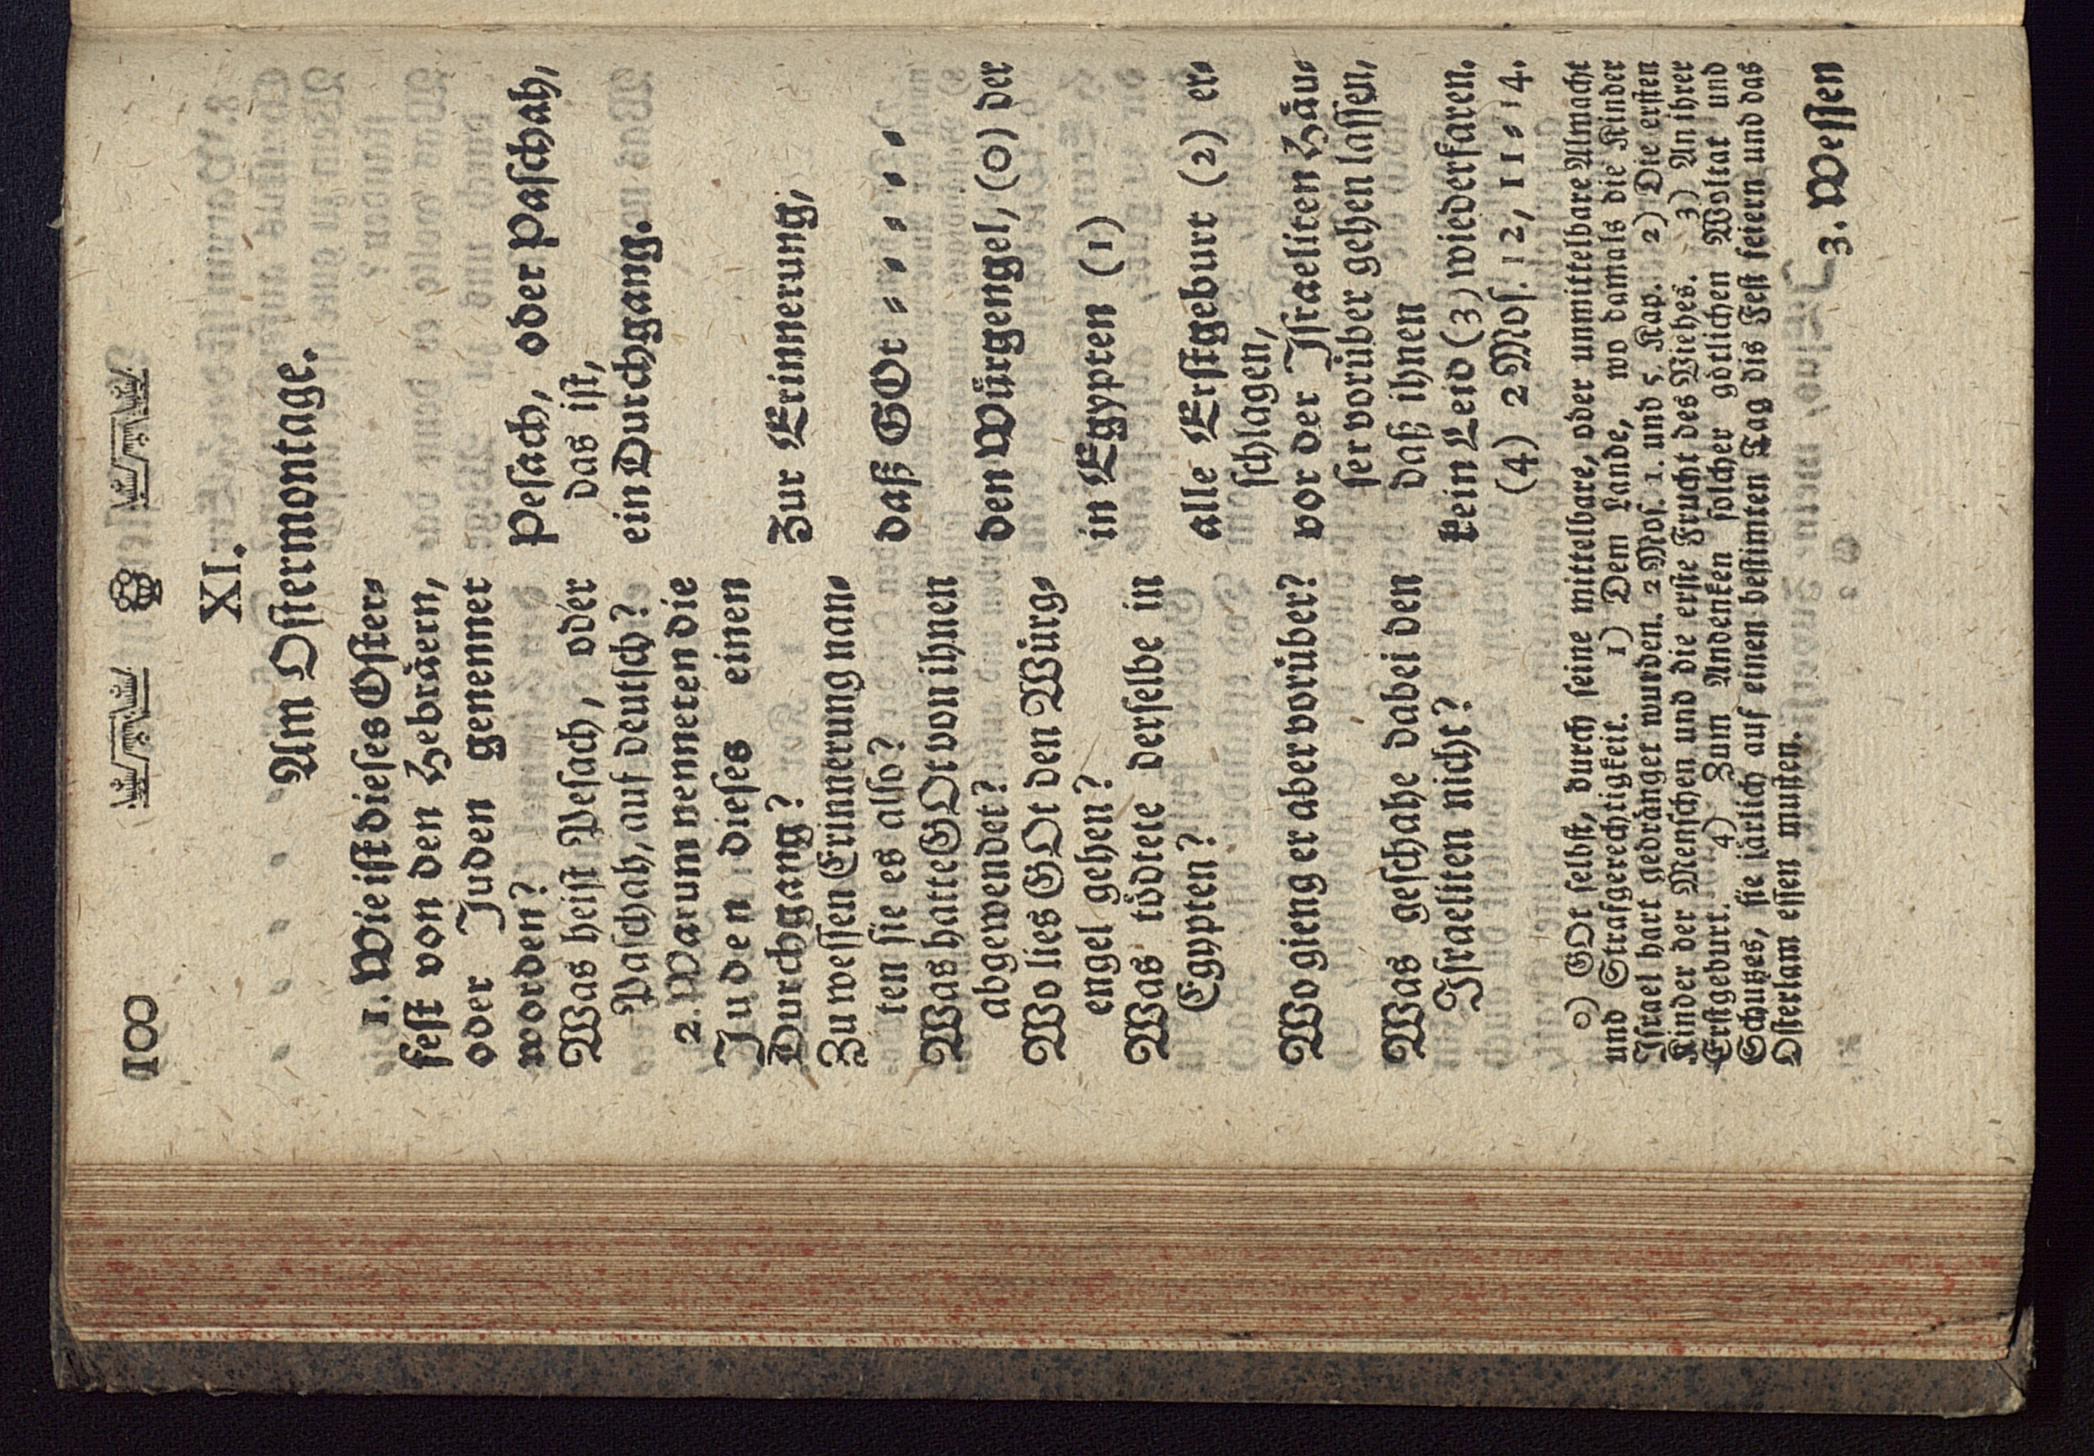 100
XI.
Am Ostermontage.
1. Wie ist dieses Oster⸗
fest von den Hebräern,
oder Juden genennet
worden?
Was heist Pesach, oder
Paschah, auf deutsch?
2. Warum nenneten die
Juden dieses einen
Durchgang?
Zu wessen Erinnerung nan⸗
ten sie es also?
Was hatte GOt von ihnen
abgewendet?
Wo lies GOt den Würg⸗
engel gehen?
Was tödtete derselbe in
Egypten?
Wo gieng er aber vorüber?
Was geschahe dabei den
Israeliten nicht?
Pesach, oder Paschah,
das ist,
ein Durchgang.
Zur Erinnerung,
daß GOt ⸗ ⸗ ⸗ ⸗ ⸗
den Würgengel, (0) der
in Egypten (1)
alle Erstgeburt (2) er⸗
schlagen,
vor der Israeliten Häu⸗
ser vorüber gehen lassen,
daß ihnen
kein Leid (3) wiederfaren.
(4) 2 Mos. 12, 11⸗14.
0) GOt selbst, durch seine mittelbare, oder unmittelbare Almacht
und Strafgerechtigkeit. 1) Dem Lande, wo damals die Kinder
Israel hart gedränget wurden. 2 Mos. 1. und 5. Kap. 2) Die ersten
Kinder der Menschen und die erste Frucht des Viehes. 3) An ihrer
Erstgeburt. 4) Zum Andenken solcher götlichen Woltat und
Schutzes, sie järlich auf einen bestimten Tag dis Fest feiern und das
Osterlam essen musten.
3. Wessen